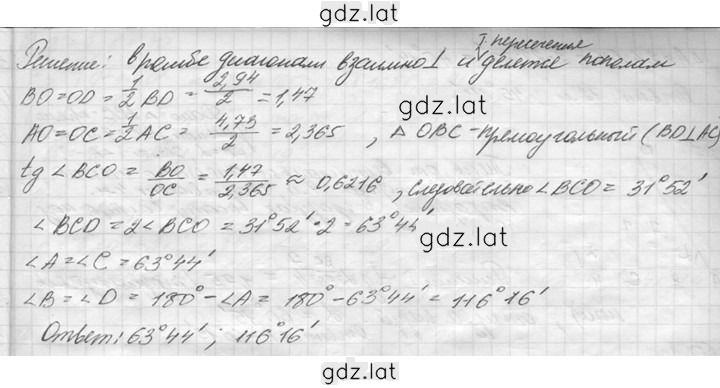 gdz.lat
т. пересечения
Решение: в ромбе диагонали взаимно ⊥ и делятся пополам
BO=OD= 1/2 BD = 2,94/2 =1,47
gdz.lat
AO=OC= 1/2 AC = 4,73/2 = 2,365 , △ OBC - прямоугольный (BO⊥AC)
tg ∠BCO = BO/OC = 1,47/2,365 ≈ 0,6216 , следовательно ∠BCO = 31°52'
∠BCD = 2∠BCO = 31°52'·2 = 63°44'
gdz.lat
∠A=∠C=63°44'
∠B=∠D = 180°-∠A = 180°-63°44' = 116°16'
Ответ: 63°44' ; 116°16'
gdz.lat
gdz.lat